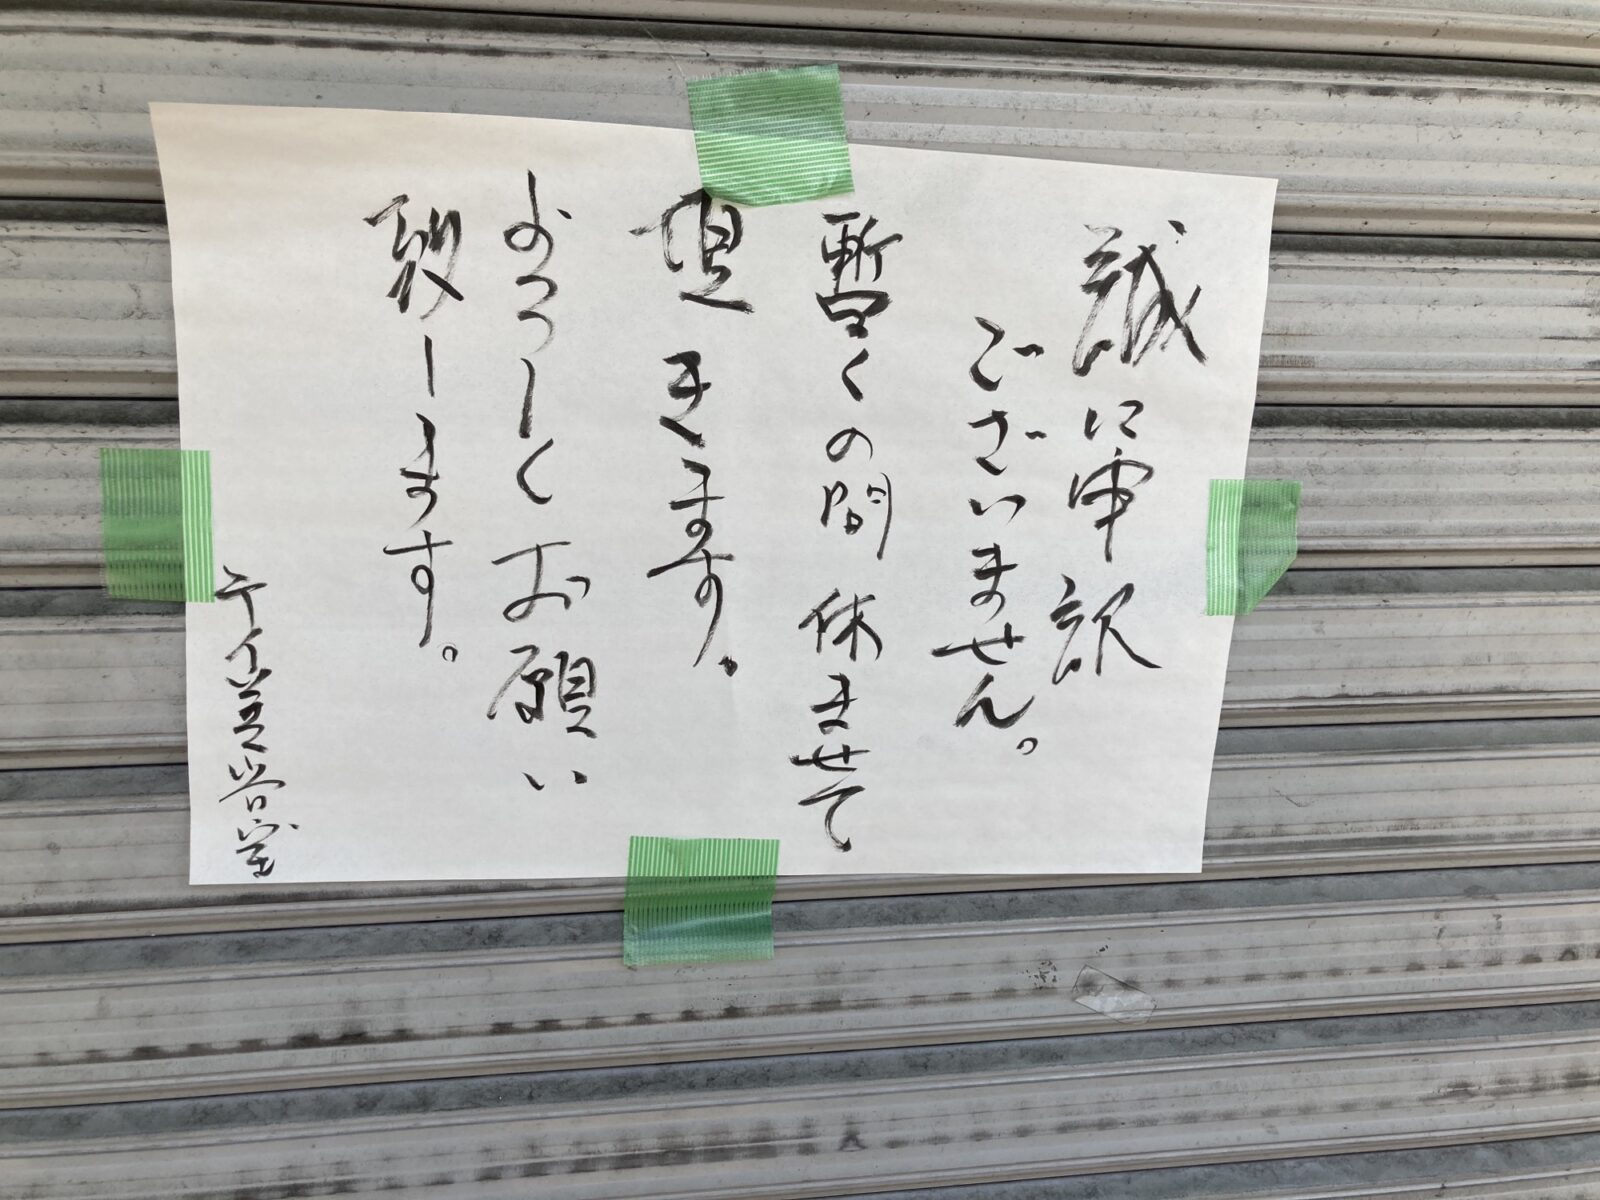 誠に申訳
ございません。
暫くの間休ませて
頂きます。
よろしくお願い
致します。